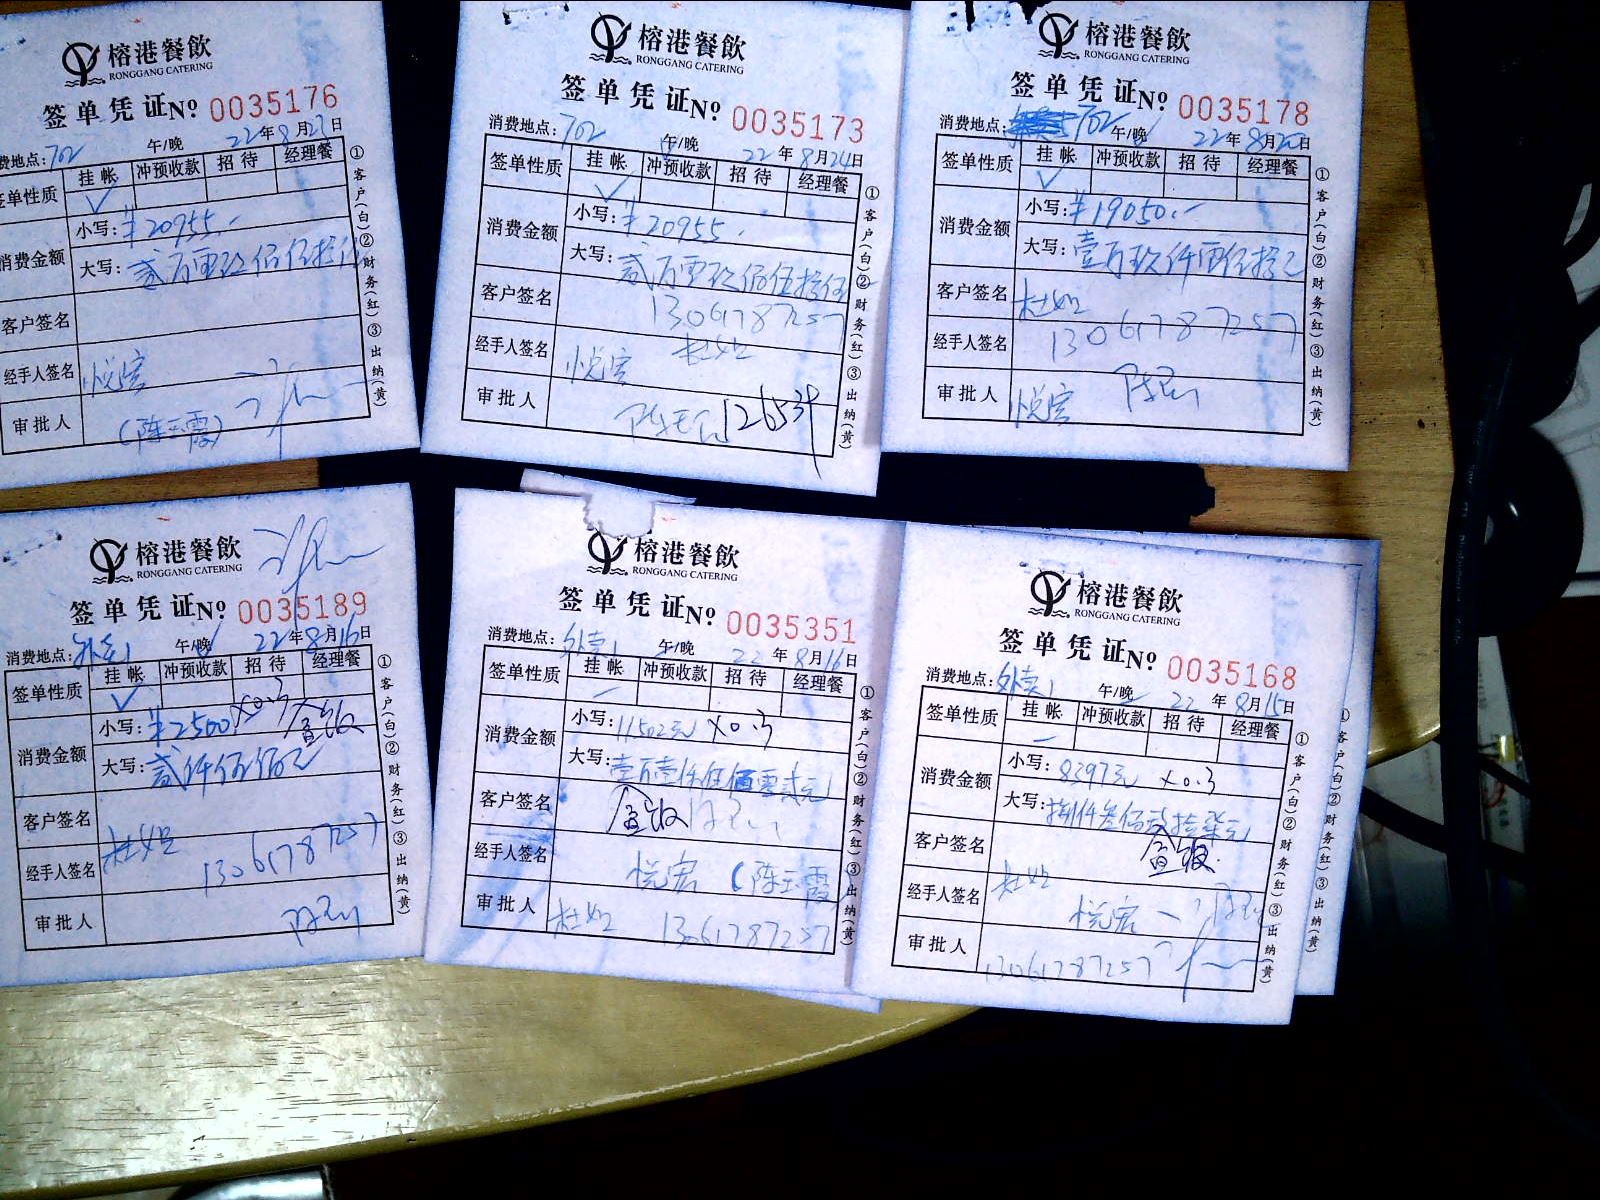 榕港餐飲
RONGGANG CATERING
签单凭证 № 0035176
费地点: 702 午/晚 22年8月23日
签单性质 挂帐 冲预收款 招待 经理餐
消费金额 小写: ¥20955.-
大写: 贰万零玖佰伍拾伍
客户签名
经手人签名 悦宾
审批人 (陈玉霞)
①客户(白)②财务(红)③出纳(黄)
榕港餐飲
RONGGANG CATERING
签单凭证 № 0035173
消费地点: 702 午/晚 22年8月24日
签单性质 挂帐 冲预收款 招待 经理餐
消费金额 小写: ¥20955.
大写: 贰万零玖佰伍拾伍
客户签名 13061787257
经手人签名 悦宾
审批人
①客户(白)②财务(红)③出纳(黄)
榕港餐飲
RONGGANG CATERING
签单凭证 № 0035178
消费地点: 702 午/晚 22年8月20日
签单性质 挂帐 冲预收款 招待 经理餐
消费金额 小写: ¥19050.-
大写: 壹万玖仟零伍拾元
客户签名
经手人签名 13061787257
审批人 悦宾
①客户(白)②财务(红)③出纳(黄)
榕港餐飲
RONGGANG CATERING
签单凭证 № 0035189
消费地点: 外卖1 午/晚 22年8月16日
签单性质 挂帐 冲预收款 招待 经理餐
消费金额 小写: ¥2500 x0.3 盒饭
大写: 贰仟伍佰元
客户签名
经手人签名 13061787257
审批人
①客户(白)②财务(红)③出纳(黄)
榕港餐飲
RONGGANG CATERING
签单凭证 № 0035351
消费地点: 外卖1 午/晚 22年8月16日
签单性质 挂帐 冲预收款 招待 经理餐
消费金额 小写: 11502元 x0.3
大写: 壹万壹仟伍佰零贰元
客户签名 盒饭
经手人签名 悦宾 (陈玉霞)
审批人 13061787257
①客户(白)②财务(红)③出纳(黄)
榕港餐飲
RONGGANG CATERING
签单凭证 № 0035168
消费地点: 外卖1 午/晚 22年8月15日
签单性质 挂帐 冲预收款 招待 经理餐
消费金额 小写: 8397元 x0.3
大写: 捌仟叁佰玖拾柒元
客户签名 盒饭
经手人签名 悦宾
审批人 13061787257
①客户(白)②财务(红)③出纳(黄)